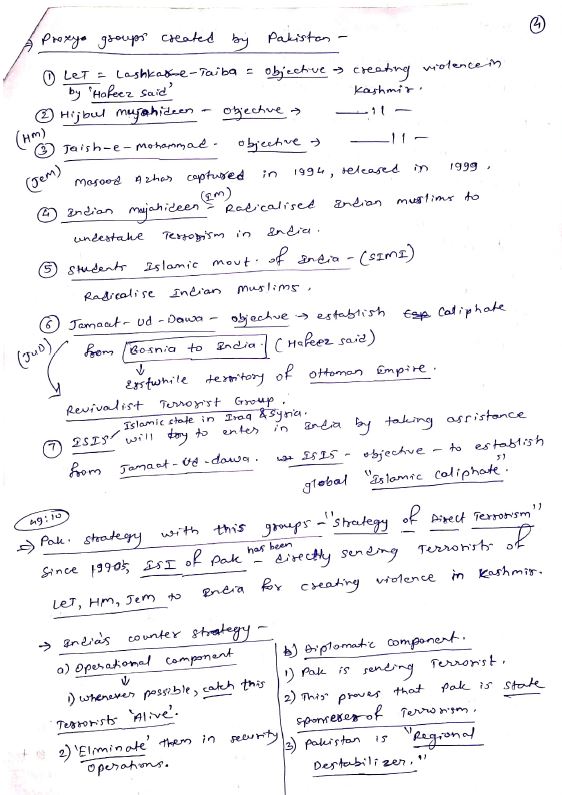 ④
⇒ Proxy groups created by Pakistan -
① LeT = Lashkar-e-Taiba = objective → creating violence in
by 'Hafeez Said' Kashmir.
② Hijbul mujahideen - objective → —— 11 —
(HM)
③ Jaish-e-Mohammad. objective → —— 11 —
(JeM) Masood Azhar captured in 1994, released in 1999.
④ Indian mujahideen (IM) = Radicalised Indian muslims to
undertake Terrorism in India.
⑤ Students Islamic movt. of India - (SIMI)
Radicalise Indian Muslims.
⑥ Jamaat-Ud-Dawa - objective → establish Caliphate
(JuD) from Bosnia to India. (Hafeez said)
↓
Erstwhile territory of Ottoman Empire.
Revivalist Terrorist Group.
Islamic state in Iraq & Syria.
⑦ ISIS will try to enter in India by taking assistance
from Jamaat-Ud-dawa. ISIS - objective - to establish
global "Islamic Caliphate".
49:10
⇒ Pak. strategy with this groups - "strategy of Direct Terrorism"
Since 1990s, ISI of Pak has been directly sending Terrorists of
LeT, HM, Jem to India for creating violence in Kashmir.
→ India's counter strategy -
a) Operational component
↓
1) whenever possible, catch this
Terrorists 'Alive'.
2) 'Eliminate' them in security
operations.
b) Diplomatic component.
1) Pak is sending Terrorist.
2) This proves that Pak is state
sponserer of Terrorism.
3) Pakistan is "Regional
Destabilizer."